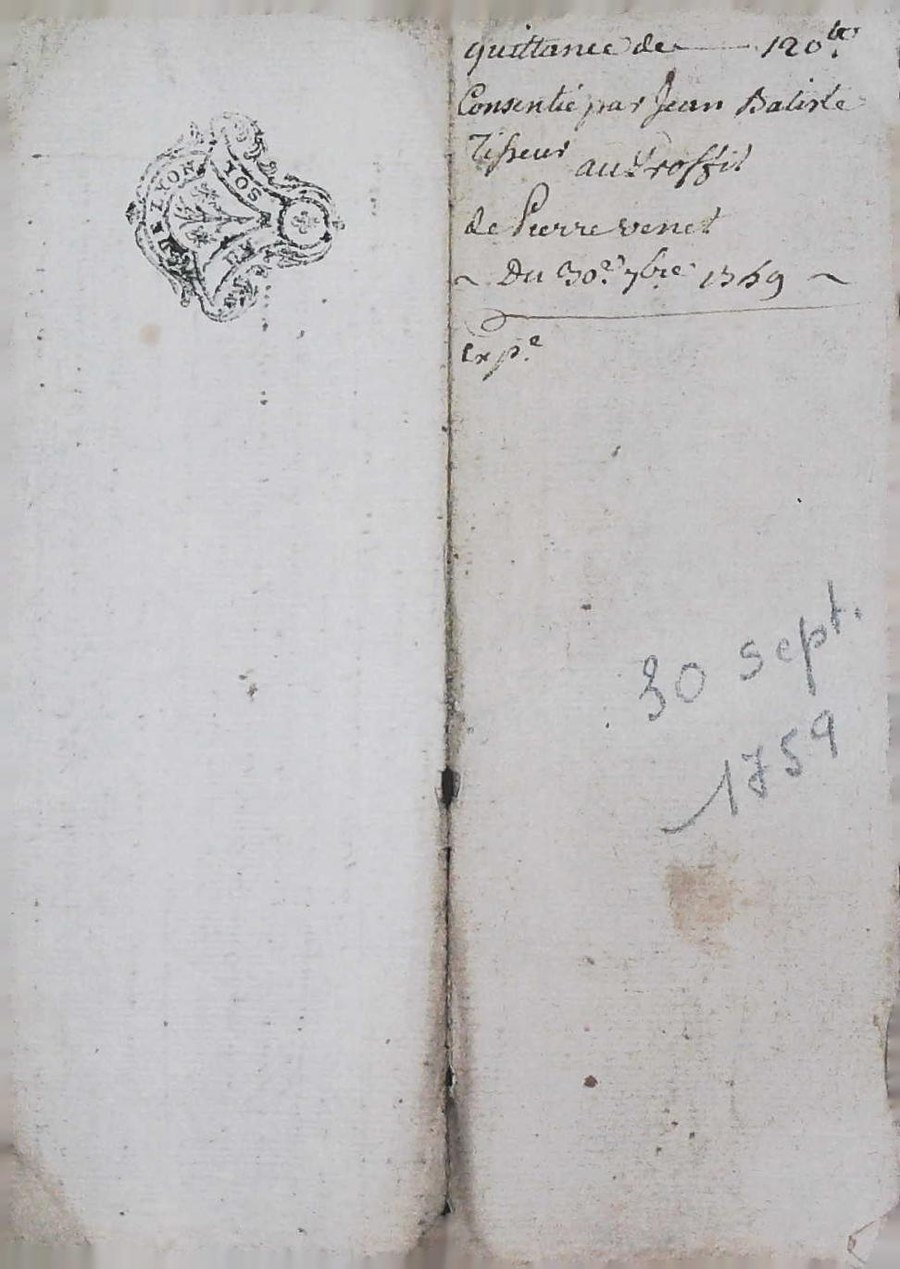 LYON
SOY
quittance de 120ᵗᵗ
Consentie par Jean Batiste
Tisseur au Proffit
de Pierre venet
~ Du 30ᵉ 7bre 1759 ~
Expᵉ
30 sept.
1759